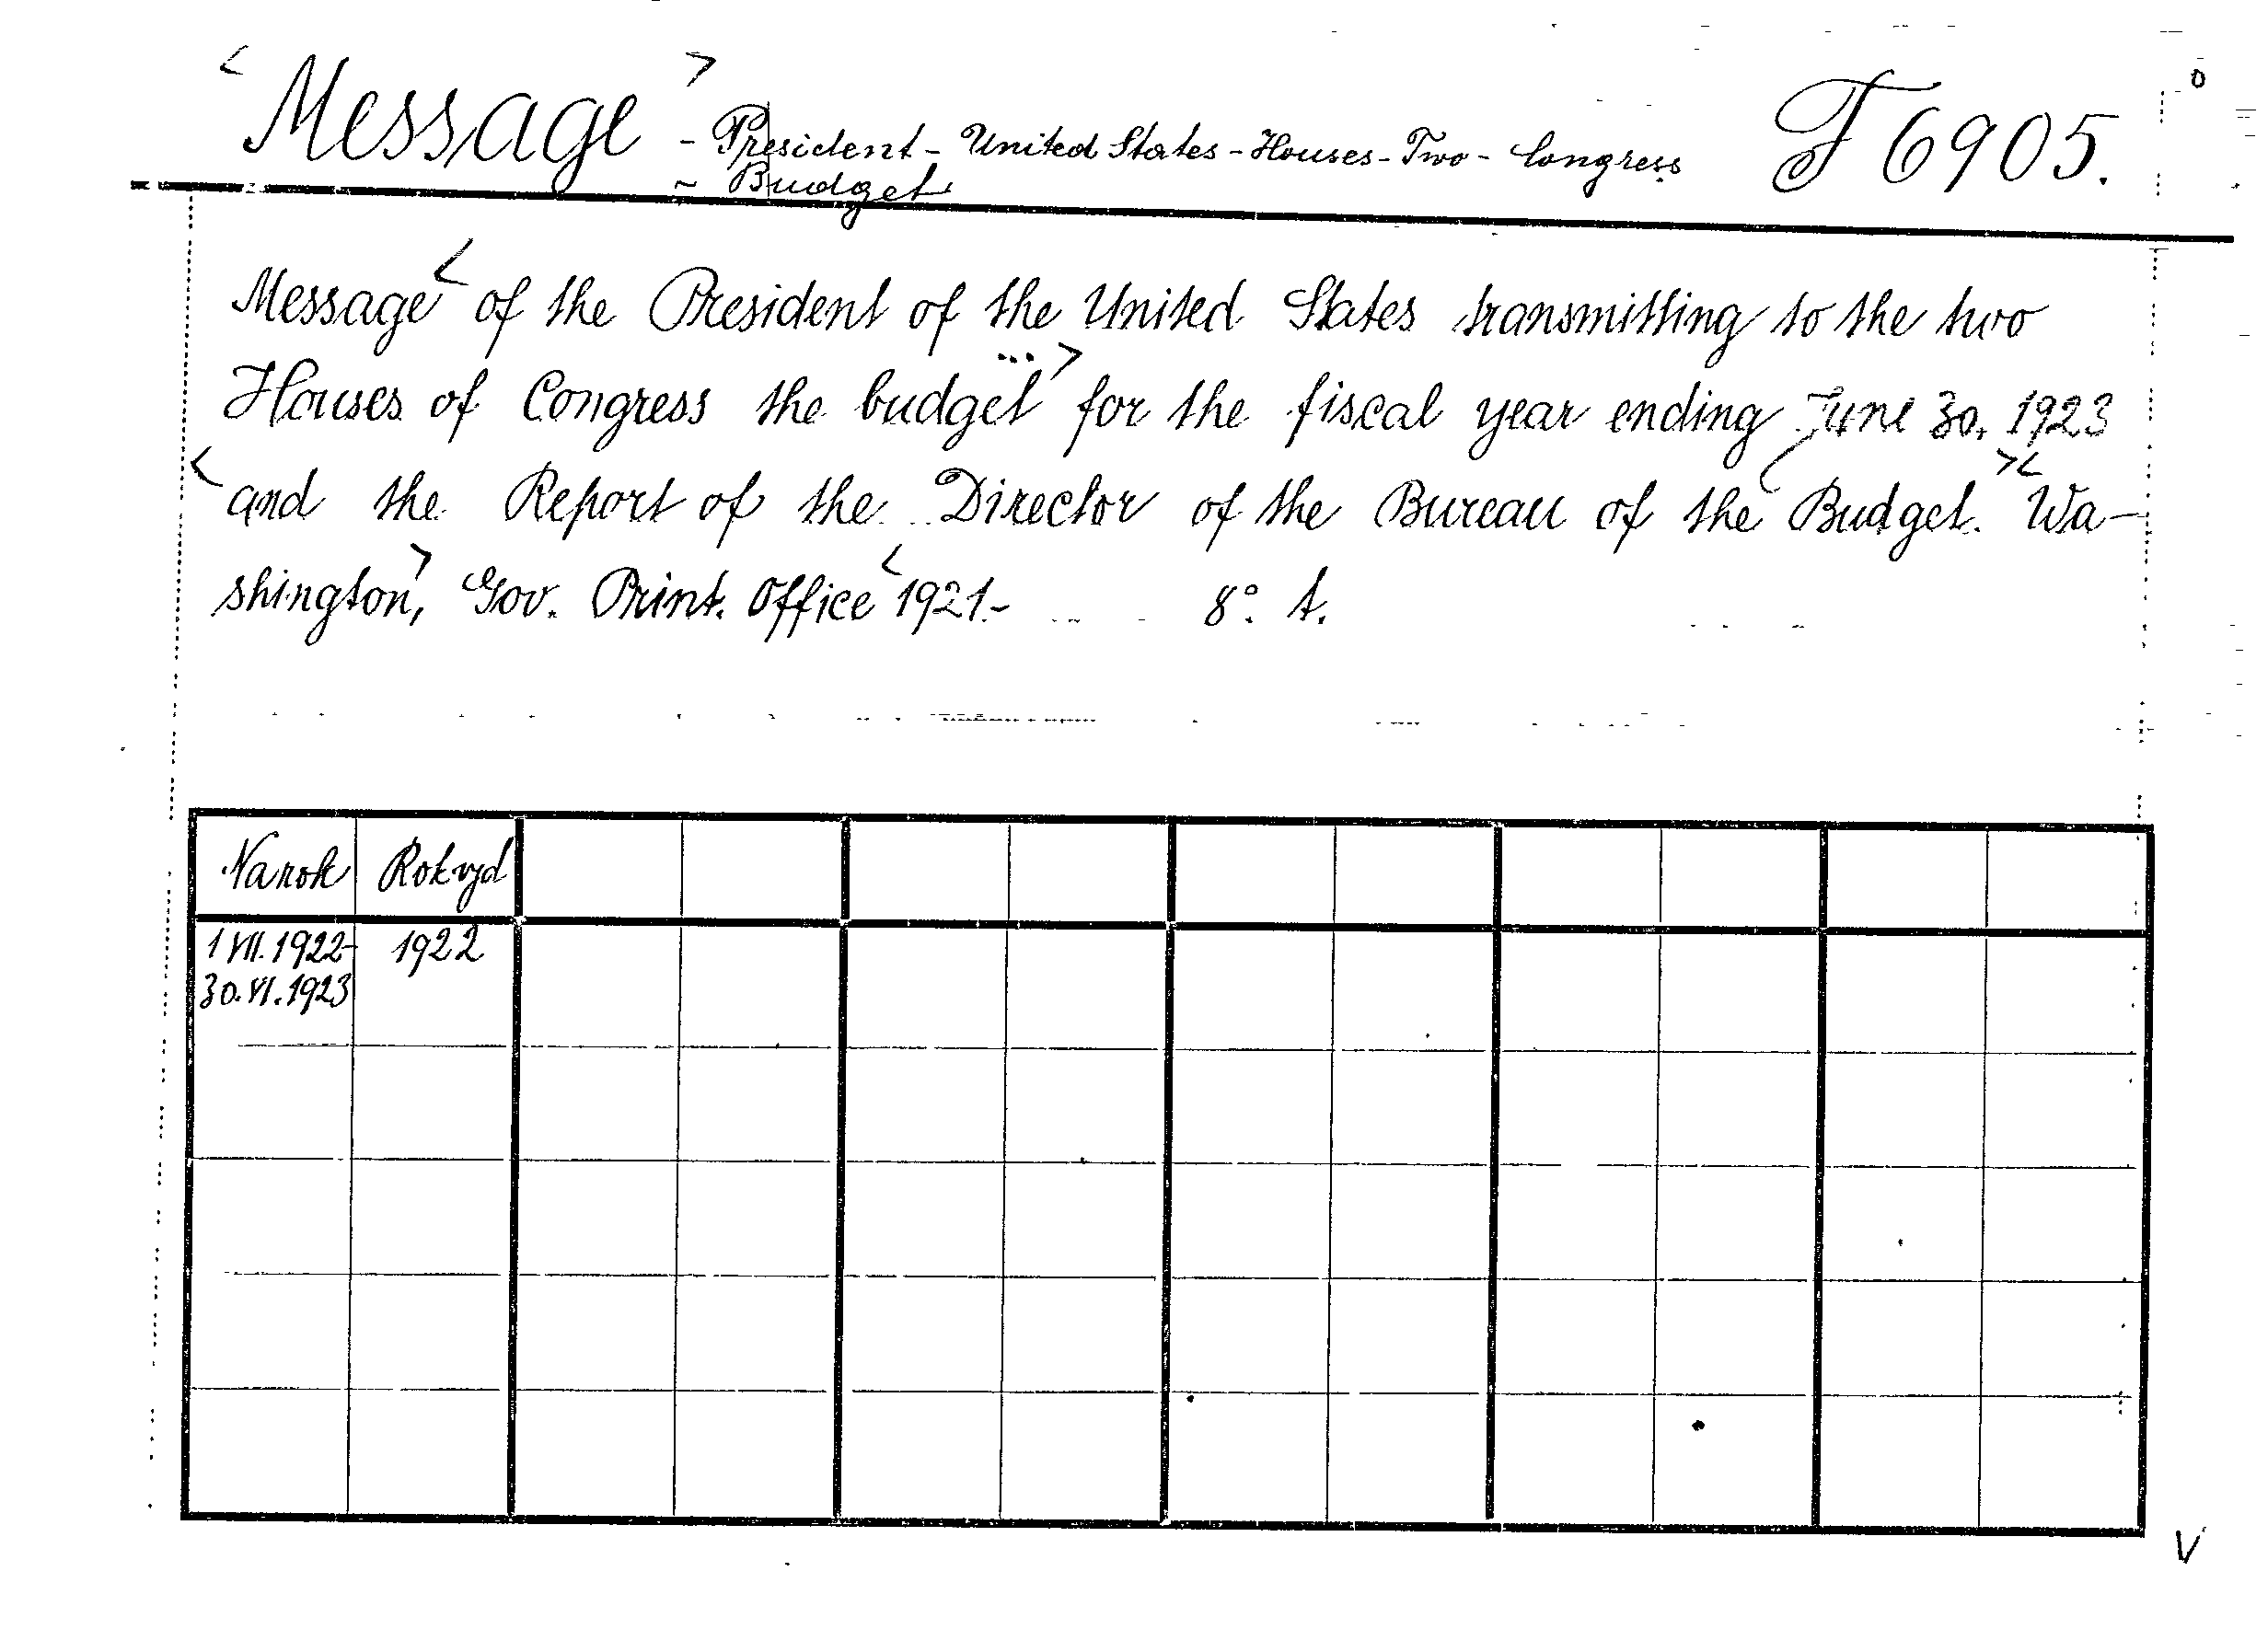 <Message> - President - United States - Houses - Two - Congress F 6905.
~ Budget
Message< of the President of the United States transmitting to the two
Houses of Congress the budget...> for the fiscal year ending June 30, 1923
<and the Report of the Director of the Bureau of the Budget.>< Wa-
shington,> Gov. Print. Office< 1921.- 8°. t.
Na rok Rok vyd
1 VII. 1922- 1922
30. VI. 1923
V